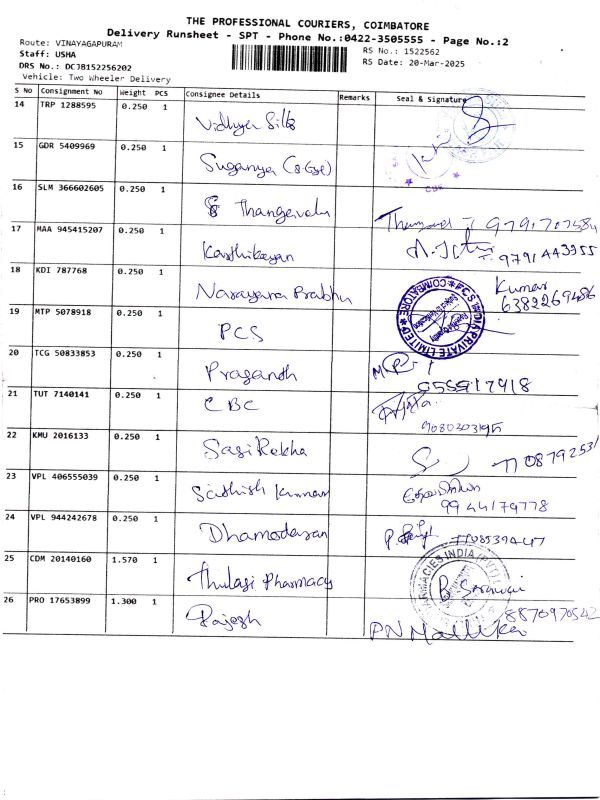 THE PROFESSIONAL COURIERS, COIMBATORE
Delivery Runsheet - SPT - Phone No.:0422-3505555 - Page No.:2
Route: VINAYAGAPURAM
Staff: USHA
DRS No.: DCJB152256202
Vehicle: Two Wheeler Delivery
RS No.: 1522562
RS Date: 20-Mar-2025
S No Consignment No Weight PCS Consignee Details Remarks Seal & Signature
14 TRP 1288595 0.250 1 Vidhya Silks
15 GDR 5409969 0.250 1 Suganya
16 SLM 366602605 0.250 1 Thangavelu
17 MAA 945415207 0.250 1 Karthikeyan 9791443955
18 KDI 787768 0.250 1 Narayana Prabhu Kumar 6382269486
19 MTP 5078918 0.250 1 PCS PCS INDIA PRIVATE LIMITED COIMBATORE
20 TCG 50833853 0.250 1 Prasanth
21 TUT 7140141 0.250 1 CBC
22 KMU 2016133 0.250 1 SasiRekha
23 VPL 406555039 0.250 1 Sathish Kumar 9944179778
24 VPL 944242678 0.250 1 Dhamodaran
25 CDM 20140160 1.570 1 Thulasi Pharmacy
26 PRO 17653899 1.300 1 Rajesh 8870970542